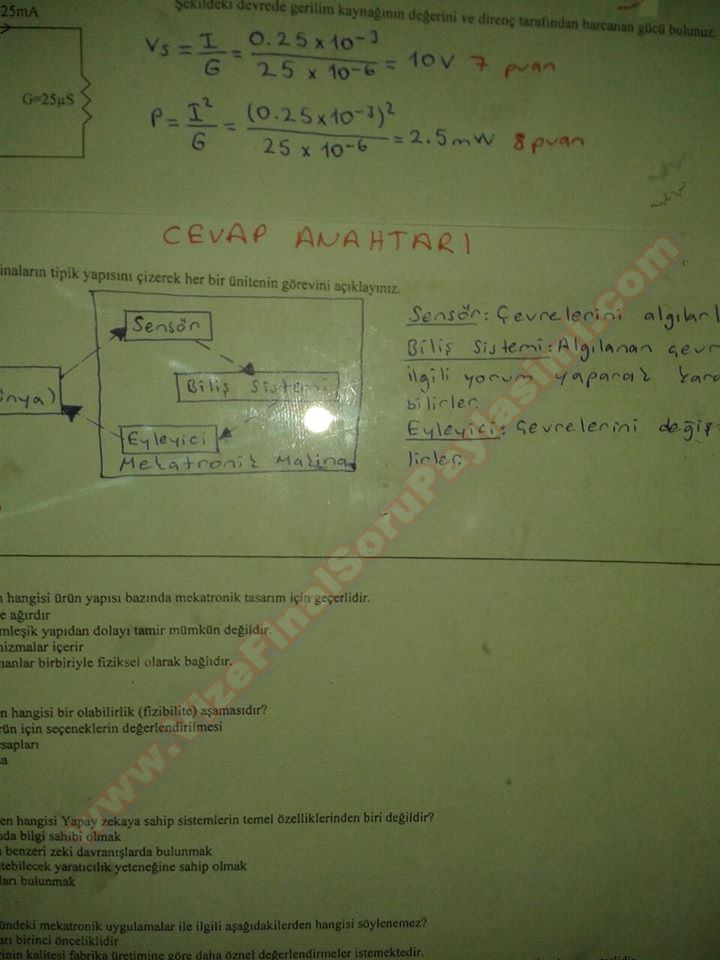 Şekildeki devrede gerilim kaynağının değerini ve direnç tarafından harcanan gücü bulunuz.
25mA
G=25µS
Vs = I/G = 0.25 x 10^-3 / 25 x 10^-6 = 10V 7 puan
P = I²/G = (0.25x10^-3)² / 25 x 10^-6 = 2.5mW 8 puan
CEVAP ANAHTARI
inaların tipik yapısını çizerek her bir ünitenin görevini açıklayınız.
Sensör
Biliş Sistemi
ünya)
Eyleyici
Mekatronik Makina
Sensör: Çevrelerini algılarl
Biliş Sistemi: Algılanan çevr
ilgili yorum yaparak kara
bilirler.
Eyleyici: Çevrelerini değiş
lirler.
n hangisi ürün yapısı bazında mekatronik tasarım için geçerlidir.
e ağırdır
mleşik yapıdan dolayı tamir mümkün değildir.
nizmalar içerir
nanlar birbiriyle fiziksel olarak bağlıdır.
n hangisi bir olabilirlik (fizibilite) aşamasıdır?
rün için seçeneklerin değerlendirilmesi
sapları
a
en hangisi Yapay zekaya sahip sistemlerin temel özelliklerinden biri değildir?
ıda bilgi sahibi olmak
n benzeri zeki davranışlarda bulunmak
tebilecek yaratıcılık yeteneğine sahip olmak
ları bulunmak
ündeki mekatronik uygulamalar ile ilgili aşağıdakilerden hangisi söylenemez?
arı birinci önceliklidir
rinin kalitesi fabrika üretimine göre daha öznel değerlendirmeler istemektedir.
www.VizeFinalSoruPaylasimi.com